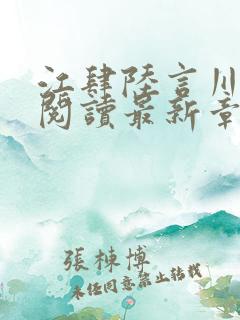 江肆陸言川
閱讀最新章
張棟博
未经同意禁止转载